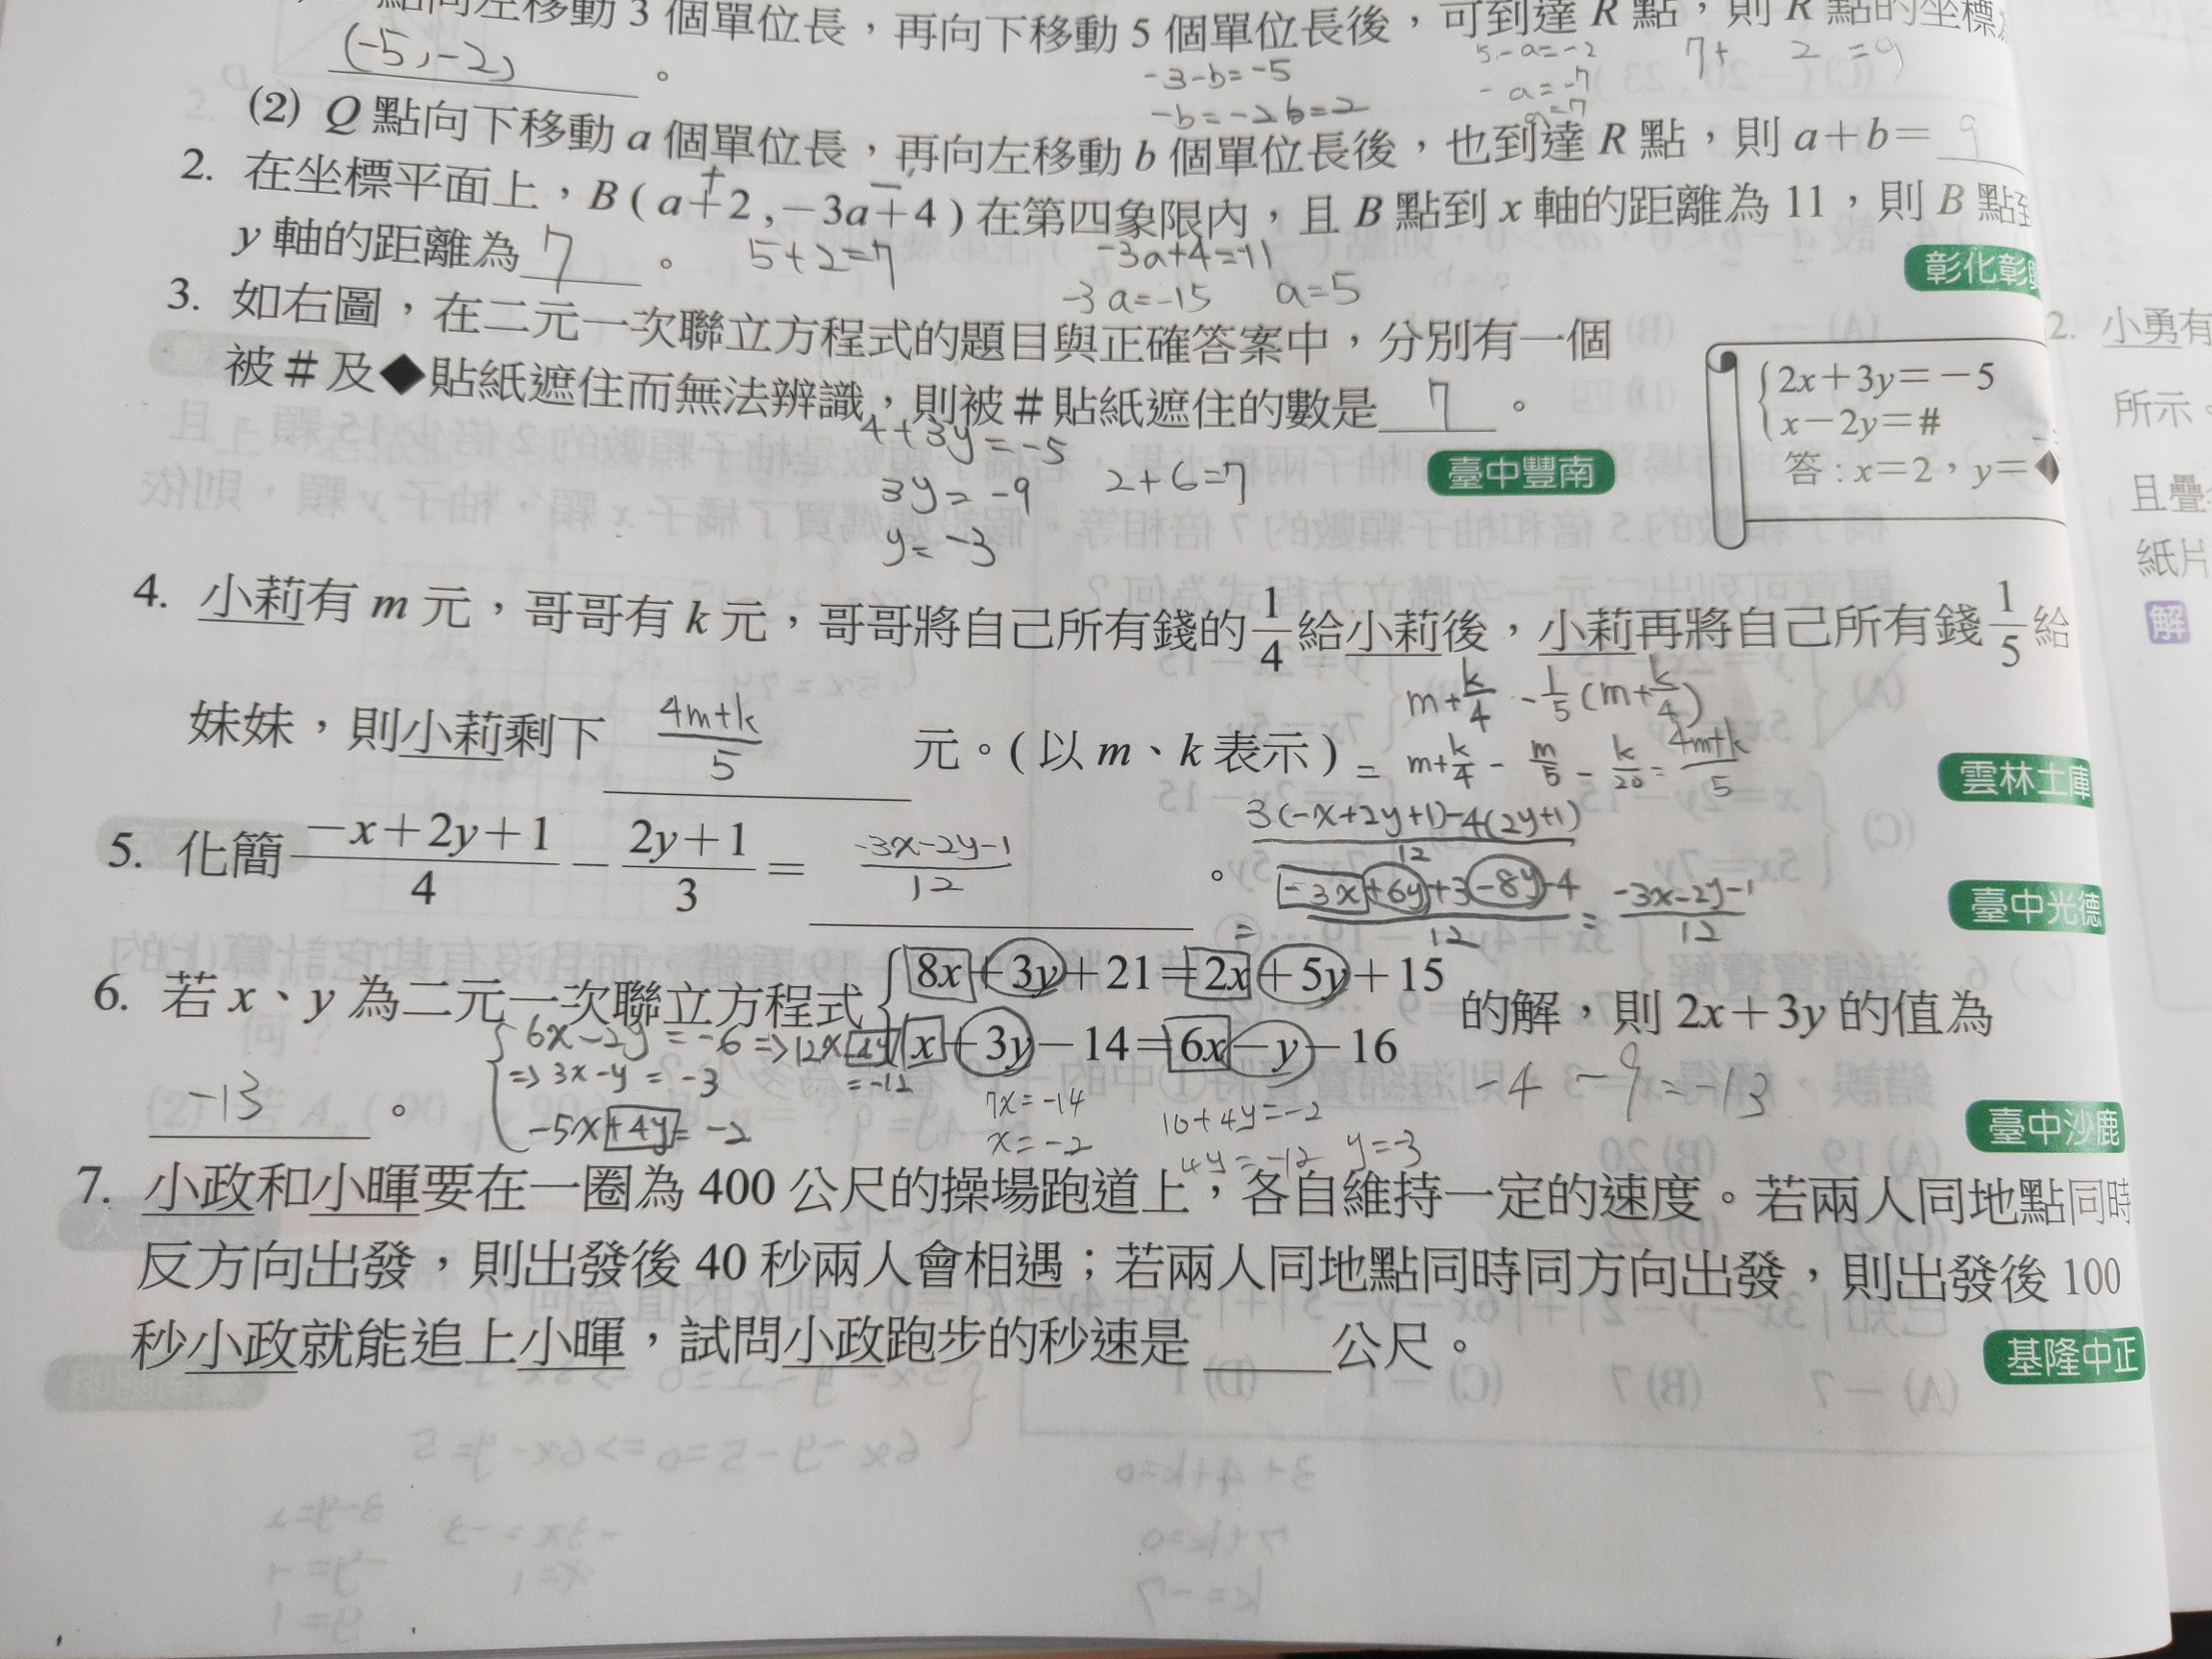 點向左移動 3 個單位長，再向下移動 5 個單位長後，可到達 R 點，則 R 點的坐標為
(-5,-2) 。
-3-b=-5
-b=-2 b=2
5-a=-2
-a=-7
a=7
7+ 2 =9
(2) Q 點向下移動 a 個單位長，再向左移動 b 個單位長後，也到達 R 點，則 a＋b＝ 9
2. 在坐標平面上，B ( a＋2 ,－3a＋4 ) 在第四象限內，且 B 點到 x 軸的距離為 11，則 B 點到
y 軸的距離為 7 。
5+2=7
-3a+4=-11
-3a=-15 a=5
彰化彰
3. 如右圖，在二元一次聯立方程式的題目與正確答案中，分別有一個
被＃及◆貼紙遮住而無法辨識，則被＃貼紙遮住的數是 7 。
4+3y=-5
3y=-9
y=-3
2+6=7
臺中豐南
2x＋3y＝－5
x－2y＝#
答 : x＝2，y＝◆
4. 小莉有 m 元，哥哥有 k 元，哥哥將自己所有錢的 1/4 給小莉後，小莉再將自己所有錢 1/5 給
妹妹，則小莉剩下 4m+k/5 元。( 以 m、k 表示 )
m+k/4 -1/5(m+k/4)
= m+k/4 - m/5 - k/20 = 4m+k/5
雲林土庫
5. 化簡 －x＋2y＋1/4 － 2y＋1/3 ＝ -3x-2y-1/12 。
3(-x+2y+1)-4(2y+1)/12
= -3x+6y+3-8y-4/12 = -3x-2y-1/12
臺中光德
6. 若 x、y 為二元一次聯立方程式 { 8x＋3y＋21＝2x＋5y＋15
x＋3y－14＝6x－y－16 的解，則 2x＋3y 的值為
-13 。
6x-2y=-6 => 12x-4y
=-12
=> 3x-y=-3
-5x+4y=-2
7x=-14
x=-2
10+4y=-2
4y=-12 y=-3
-4 -9=-13
臺中沙鹿
7. 小政和小暉要在一圈為 400 公尺的操場跑道上，各自維持一定的速度。若兩人同地點同時
反方向出發，則出發後 40 秒兩人會相遇；若兩人同地點同時同方向出發，則出發後 100
秒小政就能追上小暉，試問小政跑步的秒速是 公尺。
基隆中正
2. 小勇有
所示。
且疊
紙片
解